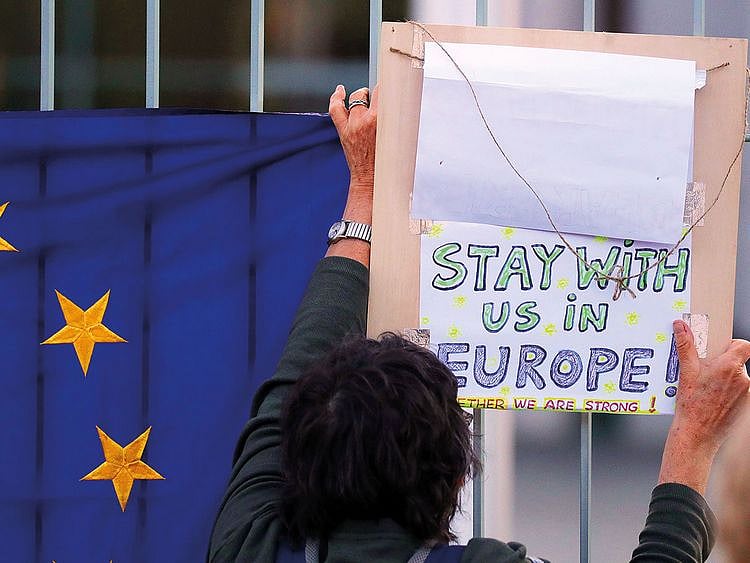 STAY WITH
US IN
EUROPE!
WE ARE STRONG!